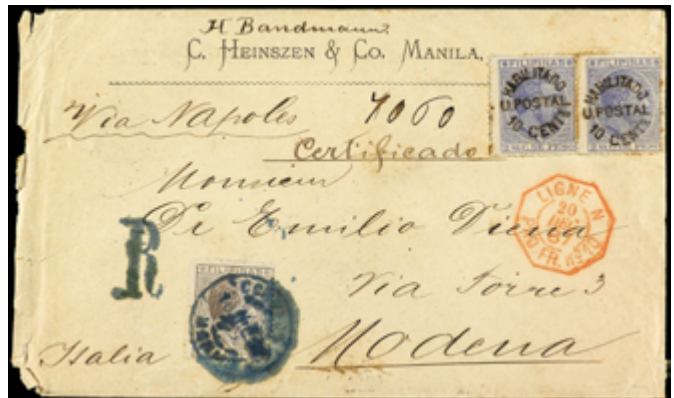 H Bandmann.
C. HEINSZEN & Co. MANILA.
FILIPINAS
HABILITADO
U. POSTAL
10 CENTS
FILIPINAS
HABILITADO
U. POSTAL
10 CENTS
Via Napoles 4060
Certificado
Monsieur
Dr Emilio Diena
LIGNE N
20
87
PAQ. FR. Nº 10
R
FILIPINAS
Via Torre 3
Italia Modena